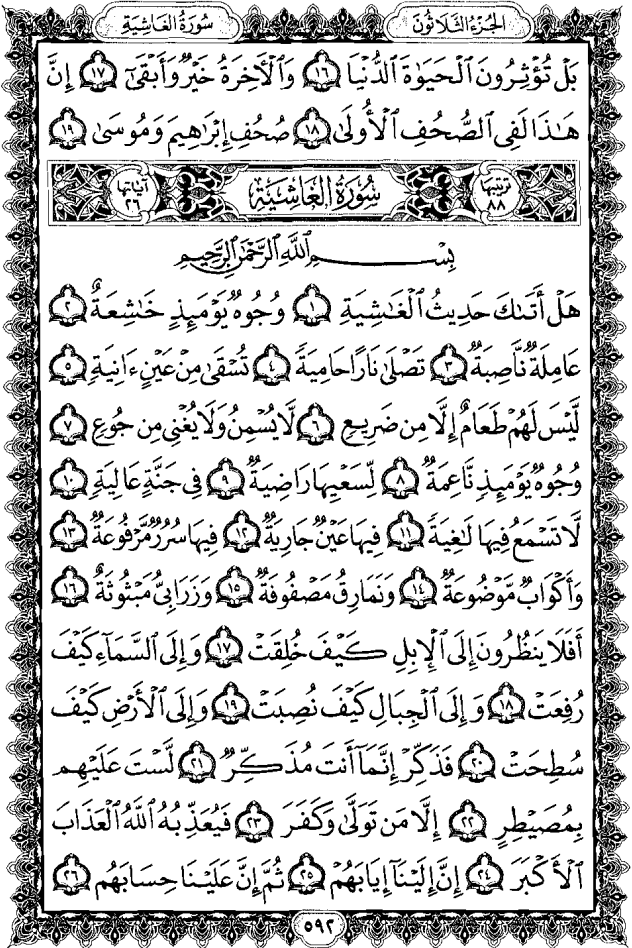 الجزء الثلاثون
سورة الغاشية
بَلْ تُؤْثِرُونَ ٱلْحَيَوٰةَ ٱلدُّنْيَا ١٦ وَٱلْأَخِرَةُ خَيْرٌ وَأَبْقَىٰٓ ١٧ إِنَّ
هَـٰذَا لَفِى ٱلصُّحُفِ ٱلْأُولَىٰ ١٨ صُحُفِ إِبْرَٰهِيمَ وَمُوسَىٰ ١٩
ترتيبها ٨٨
سُورَةُ الغَاشِيَةِ
آياتها ٢٦
بِسْمِ ٱللَّهِ ٱلرَّحْمَٰنِ ٱلرَّحِيمِ
هَلْ أَتَىٰكَ حَدِيثُ ٱلْغَـٰشِيَةِ ١ وُجُوهٌ يَوْمَئِذٍ خَـٰشِعَةٌ ٢
عَامِلَةٌ نَّاصِبَةٌ ٣ تَصْلَىٰ نَارًا حَامِيَةً ٤ تُسْقَىٰ مِنْ عَيْنٍ ءَانِيَةٍ ٥
لَّيْسَ لَهُمْ طَعَامٌ إِلَّا مِن ضَرِيعٍ ٦ لَّا يُسْمِنُ وَلَا يُغْنِى مِن جُوعٍ ٧
وُجُوهٌ يَوْمَئِذٍ نَّاعِمَةٌ ٨ لِّسَعْيِهَا رَاضِيَةٌ ٩ فِى جَنَّةٍ عَالِيَةٍ ١٠
لَّا تَسْمَعُ فِيهَا لَـٰغِيَةً ١١ فِيهَا عَيْنٌ جَارِيَةٌ ١٢ فِيهَا سُرُرٌ مَّرْفُوعَةٌ ١٣
وَأَكْوَابٌ مَّوْضُوعَةٌ ١٤ وَنَمَارِقُ مَصْفُوفَةٌ ١٥ وَزَرَابِىُّ مَبْثُوثَةٌ ١٦
أَفَلَا يَنظُرُونَ إِلَى ٱلْإِبِلِ كَيْفَ خُلِقَتْ ١٧ وَإِلَى ٱلسَّمَآءِ كَيْفَ
رُفِعَتْ ١٨ وَإِلَى ٱلْجِبَالِ كَيْفَ نُصِبَتْ ١٩ وَإِلَى ٱلْأَرْضِ كَيْفَ
سُطِحَتْ ٢٠ فَذَكِّرْ إِنَّمَآ أَنتَ مُذَكِّرٌ ٢١ لَّسْتَ عَلَيْهِم
بِمُصَيْطِرٍ ٢٢ إِلَّا مَن تَوَلَّىٰ وَكَفَرَ ٢٣ فَيُعَذِّبُهُ ٱللَّهُ ٱلْعَذَابَ
ٱلْأَكْبَرَ ٢٤ إِنَّ إِلَيْنَآ إِيَابَهُمْ ٢٥ ثُمَّ إِنَّ عَلَيْنَا حِسَابَهُم ٢٦
٥٩٢